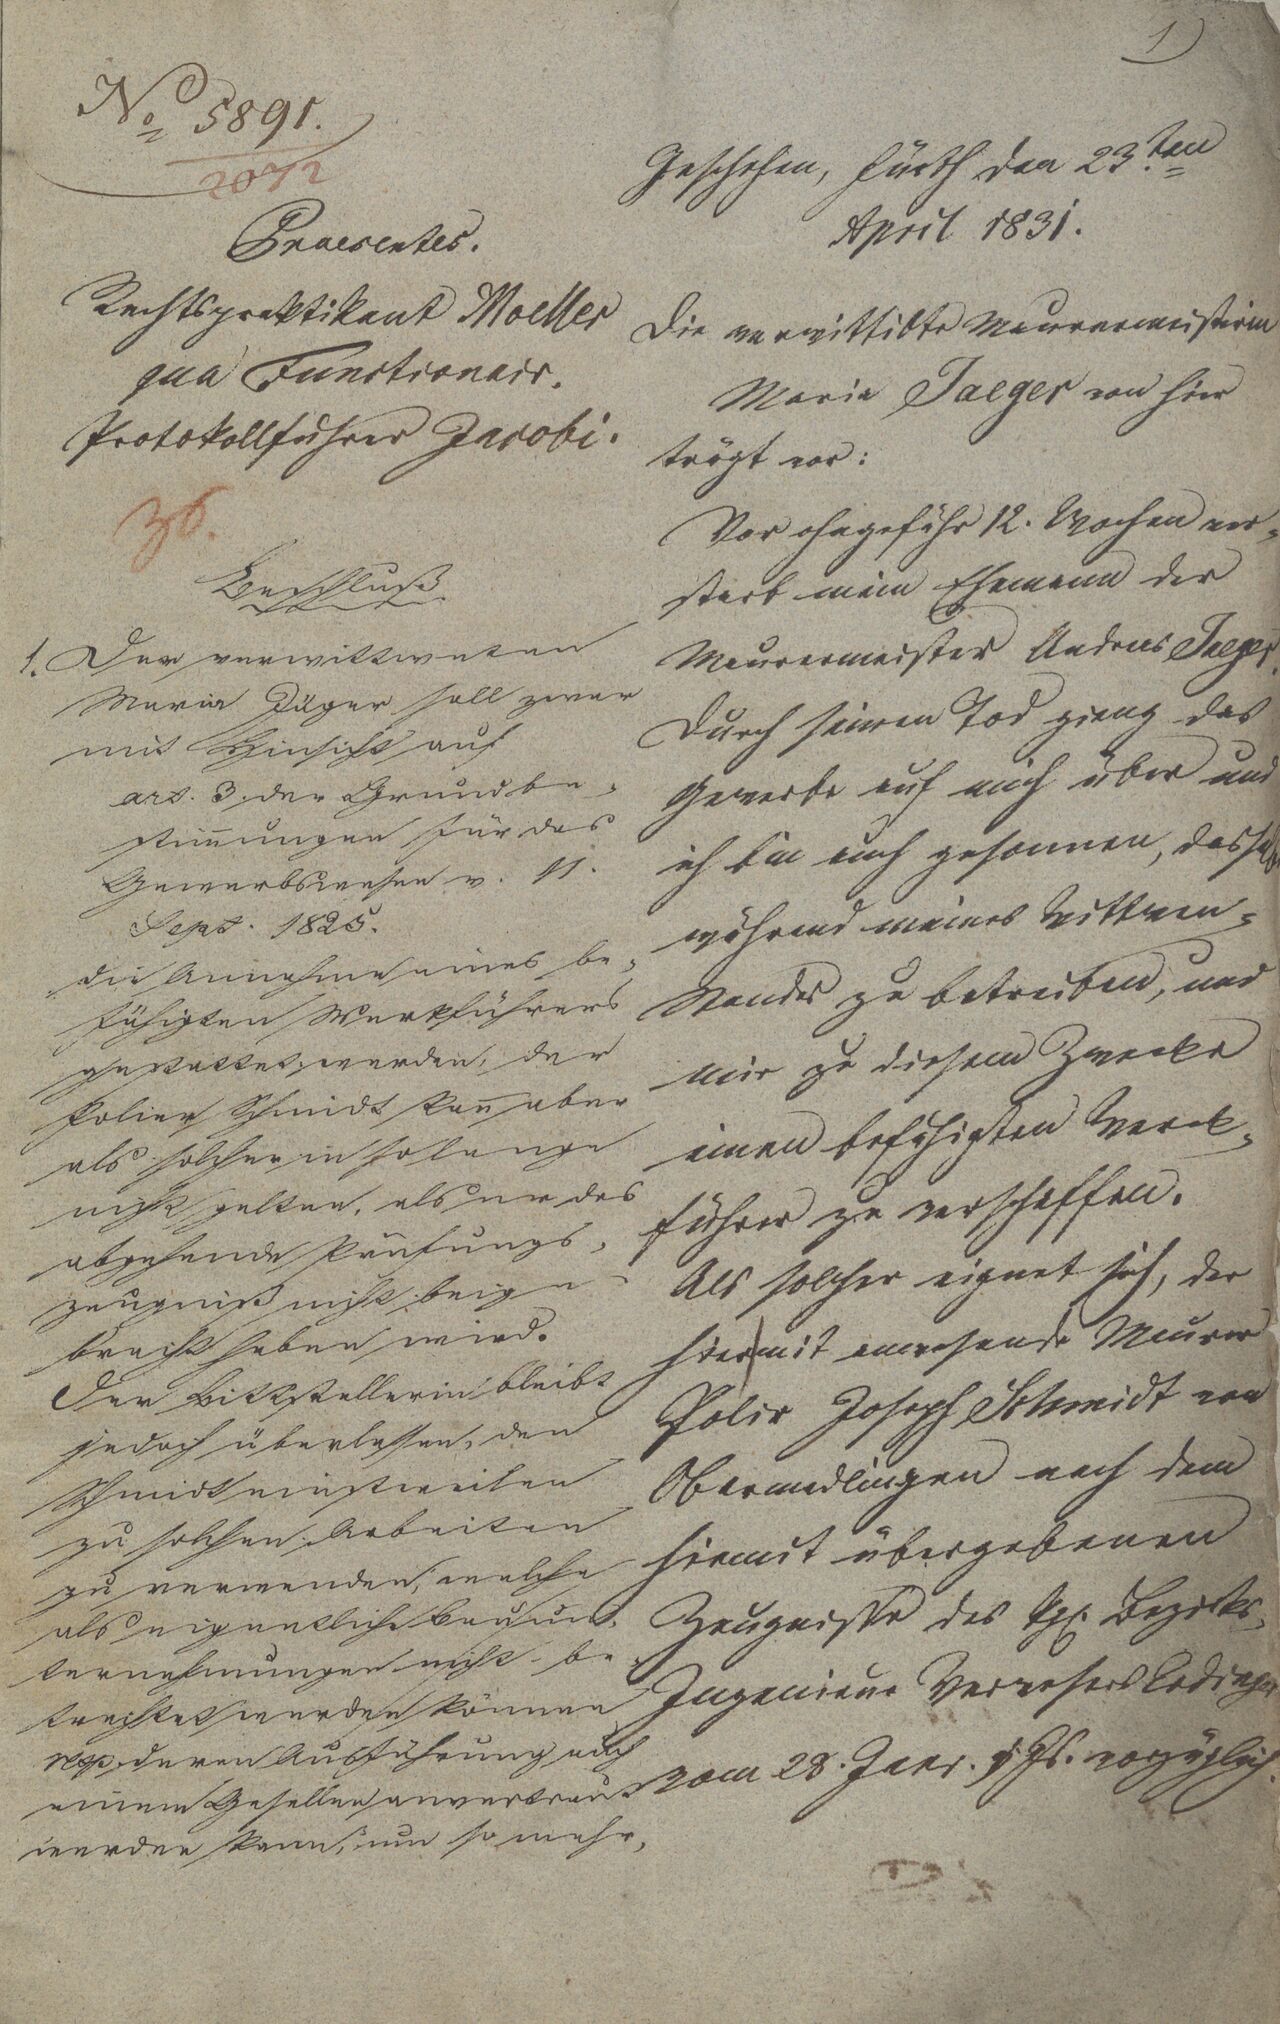 1
No 5891.
2072
Praesentes.
Rechtspraktikant Moeller
qua Functionair.
Protokollführer Jacobi.
36.
Beschluß
1. Der verwittweten
Maria Jäger soll zwar
mit Hinsicht auf
art. 3. der Grundbe-
stim̄ungen für das
Gewerbswesen v. 11.
Sept. 1825.
die Annahme eines be-
fähigten Werkführers
gestattet werden, der
Polier Schmidt kan̄ aber
als solcher in solange
nicht gelten, als er das
abgehende Prüfungs-
zeugniß nicht beige-
bracht haben wird.
Der Bittstellerin bleibt
jedoch überlassen, den
Schmidt einstweilen
zu solchen Arbeiten
zu verwenden, welche
als eigentliche Bauun-
ternehmungen nicht be-
trachtet werden können
resp. deren Ausführung auch
einem Gesellen anvertraut
werden kann, um so mehr,
Geschehen, Fürth den 23.ten
April 1831.
Die verwittibte Maurermeisterin
Maria Jaeger von hier
trägt vor:
Vor ohngefähr 12. Wochen ver-
starb mein Ehemann der
Maurermeister Andreas Jaeger.
Durch seinen Tod gieng das
Gewerbe auf mich über und
ich bin auch gesonnen, dasselbe
während meines Wittwen-
standes zu betreiben, und
mir zu diesem Zwecke
einen befähigten Werk-
führer zu verschaffen.
Als solcher eignet sich, der
hiermit anwesende Maurer
Polir Joseph Schmidt von
Obermedlingen nach dem
hiemit übergebenen
Zeugnisse des kgl. Bezirks-
Ingenieur Verwesers
vom 28. Janr. d. Js. vorzüglich.